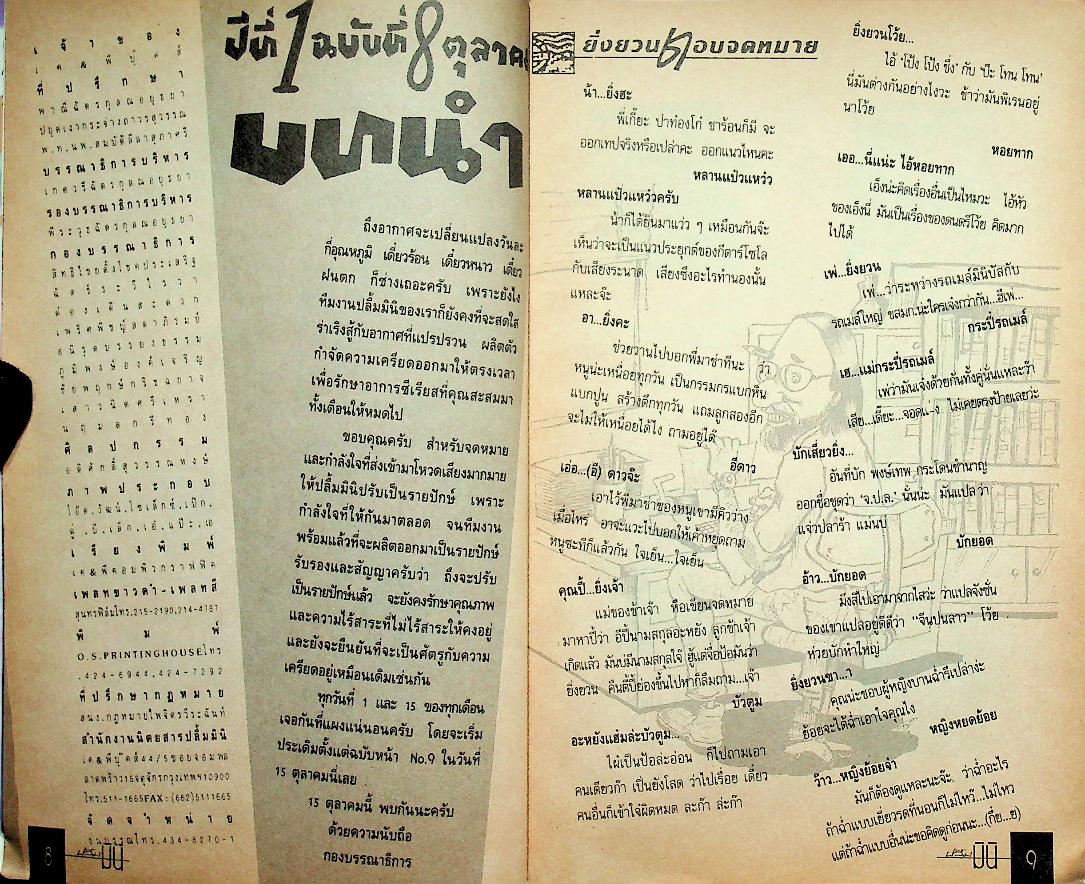 เจ้าของ
เค&พีบุ๊คส์
ที่ปรึกษา
พาณีฉัตรกุลณอยุธยา
พ.ท.นพ.สมบัติลีลาสุภาศรี
บรรณาธิการบริหาร
เกศวรีฉัตรกุลณอยุธยา
รองบรรณาธิการบริหาร
พีระวุธฉัตรกุลณอยุธยา
กองบรรณาธิการ
ศิลปกรรม
อดิศักดิ์สุวรรณหงษ์
ภาพประกอบ
เรียงพิมพ์
เค&พีคอมพิวกราฟฟิค
เพลทขาวดำ-เพลทสี
สุนทรฟิล์มโทร.215-2190,214-4787
พิมพ์
O.S.PRINTINGHOUSEโทร
.424-6944,424-7292
ที่ปรึกษากฎหมาย
สนง.กฎหมายไพจิตรวีระฉันท์
สำนักงานนิตยสารปลื้มมินิ
เค&พีบุ๊คส์44/5ซอยจอมพล
ลาดพร้าว15จตุจักรกรุงเทพฯ10900
โทร.511-1665FAX:(662)5111665
จัดจำหน่าย
ธนบรรณโทร.434-8270-1
8
มินิ
ปีที่ 1 ฉบับที่ 8 ตุลาคม
บทนำ
ถึงอากาศจะเปลี่ยนแปลงวันละ
กี่อุณหภูมิ เดี๋ยวร้อน เดี๋ยวหนาว เดี๋ยว
ฝนตก ก็ช่างเถอะครับ เพราะยังไง
ทีมงานปลื้มมินิของเราก็ยังคงที่จะสดใส
ร่าเริงสู้กับอากาศที่แปรปรวน ผลิตตัว
กำจัดความเครียดออกมาให้ตรงเวลา
เพื่อรักษาอาการซีเรียสที่คุณสะสมมา
ทั้งเดือนให้หมดไป
ขอบคุณครับ สำหรับจดหมาย
และกำลังใจที่ส่งเข้ามาโหวดเสียงมากมาย
ให้ปลื้มมินิปรับเป็นรายปักษ์ เพราะ
กำลังใจที่ให้กันมาตลอด จนทีมงาน
พร้อมแล้วที่จะผลิตออกมาเป็นรายปักษ์
รับรองและสัญญาครับว่า ถึงจะปรับ
เป็นรายปักษ์แล้ว จะยังคงรักษาคุณภาพ
และความไร้สาระที่ไม่ไร้สาระให้คงอยู่
และยังจะยืนยันที่จะเป็นศัตรูกับความ
เครียดอยู่เหมือนเดิมเช่นกัน
ทุกวันที่ 1 และ 15 ของทุกเดือน
เจอกันที่แผงแน่นอนครับ โดยจะเริ่ม
ประเดิมตั้งแต่ฉบับหน้า No.9 ในวันที่
15 ตุลาคมนี้เลย
15 ตุลาคมนี้ พบกันนะครับ
ด้วยความนับถือ
กองบรรณาธิการ
ยิ่งยวนตอบจดหมาย
น้า...ยิ่งฮะ
พี่เกี๊ยะ ปาท่องโก๋ ชาร้อนก็มี จะ
ออกเทปจริงหรือเปล่าคะ ออกแนวไหนคะ
หลานแป๋วแหว๋ว
หลานแป๋วแหว๋วครับ
น้าก็ได้ยินมาแว่ว ๆ เหมือนกันจ๊ะ
เห็นว่าจะเป็นแนวประยุกต์ของกีตาร์โซโล
กับเสียงระนาด เสียงซึงอะไรทำนองนั้น
แหละจ๊ะ
อา...ยิ่งคะ
ช่วยวานไปบอกพี่มาช่าทีนะ ว่า
หนูน่ะเหนื่อยทุกวัน เป็นกรรมกรแบกหิน
แบกปูน สร้างตึกทุกวัน แถมลูกสองอีก
จะไม่ให้เหนื่อยได้ไง ถามอยู่ได้
อีดาว
เอ่อ...(อี) ดาวจ๊ะ
เอาไว้พี่มาช่าของหนูเขามีคิวว่าง
เมื่อไหร่ อาจะแวะไปบอกให้เค้าหยุดถาม
หนูซะทีก็แล้วกัน ใจเย็น...ใจเย็น
คุณปี้...ยิ่งเจ้า
แม่ของข้าเจ้า หื้อเขียนจดหมาย
มาหาปี้ว่า อีปี้นามสกุลอะหยัง ลูกข้าเจ้า
เกิดแล้ว มันบ่มีนามสกุลใจ้ ฮู้แต่จื่อป้อมันว่า
ยิ่งยวน คืนตี้ปี้ย่องขึ้นไปหาก็ลืมถาม...เจ๊า
บัวตูม
อะหยังแฮ่มล่ะบัวตูม...
ไผ่เป็นป้อล่ะอ่อน ก็ไปถามเอา
คนเดียวก๊า เป็นยังโสด ว่าไปเรื่อย เดี๋ยว
คนอื่นก็เข้าใจผิดหมด ละก๊า ล่ะก๊า
ยิ่งยวนโว้ย...
ไอ้ ‘โป้ง โป้ง ซึ่ง’ กับ ‘ป๊ะ โทน โทน’
นี่มันต่างกันอย่างไงวะ ข้าว่ามันพิเรนอยู่
นาโว้ย
หอยทาก
เออ...นี่แน่ะ ไอ้หอยทาก
เอ็งน่ะคิดเรื่องอื่นเป็นไหมวะ ไอ้หัว
ของเอ็งนี่ มันเป็นเรื่องของดนตรีโว้ย คิดมาก
ไปได้
เพ่...ยิ่งยวน
เพ่...ว่าระหว่างรถเมล์มินิบัสกับ
รถเมล์ใหญ่ ขสมก.น่ะใครเจ๋งกว่ากัน...ฮึเพ่...
กระปี๋รถเมล์
เฮ...แม่กระปี๋รถเมล์
เพ่ว่ามันเจ๋งด้วยกันทั้งคู่นั่นแหละว๊า
เสีย...เดี๊ยะ...จอดแ-ง ไม่เคยตรงป้ายเลยว่ะ
บักเสี่ยวยิ่ง...
อันที่บัก พงษ์เทพ กระโดนชำนาญ
ออกชื่อชุดว่า ‘จ.ป.ล.’ นั้นน่ะ มันแปลว่า
แจ่วปลาร้า แม่นบ่
บักยอด
อ้าว...บักยอด
มึงสิไปเอามาจากไสว่ะ ว่าแปลจังซั่น
ของเขาแปลอยู่ดีดีว่า “จีนปนลาว” โว้ย
ห่วยบักห่าใหญ่
ยิ่งยวนขา...า
คุณน่ะชอบผู้หญิงบานฉ่ำรึเปล่าง่ะ
ย้อยจะได้ฉ่ำเอาใจคุณไง
หญิงหยดย้อย
ว๊าว...หญิงย้อยจ๋า
มันก็ต้องดูแหละนะจ๊ะ ว่าฉ่ำอะไร
ถ้าฉ่ำแบบเยี่ยวรดที่นอนก็ไม่ไหว๊...ไม่ไหว
แต่ถ้าฉ่ำแบบอื่นน่ะขอคิดดูก่อนนะ...(กี๋ย...ย)
มินิ
9